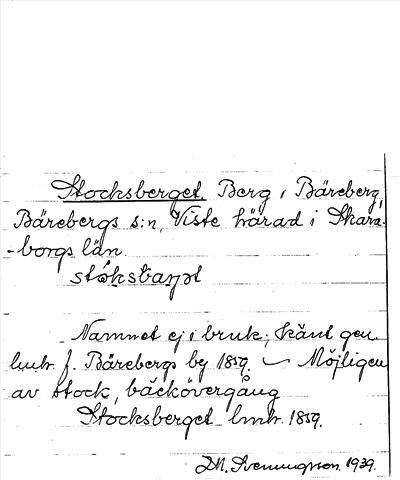 Stocksberget. Berg i Bäreberg,
Bärebergs s:n, Viste härad i Skara-
-borgs län.
Namnet ej i bruk; känt gen.
lmtr. f. Bärebergs by 1859. – Möjligen
av stock, bäckövergång
Stocksberget lmtr. 1859.
D.M. Svenningsson. 1939.